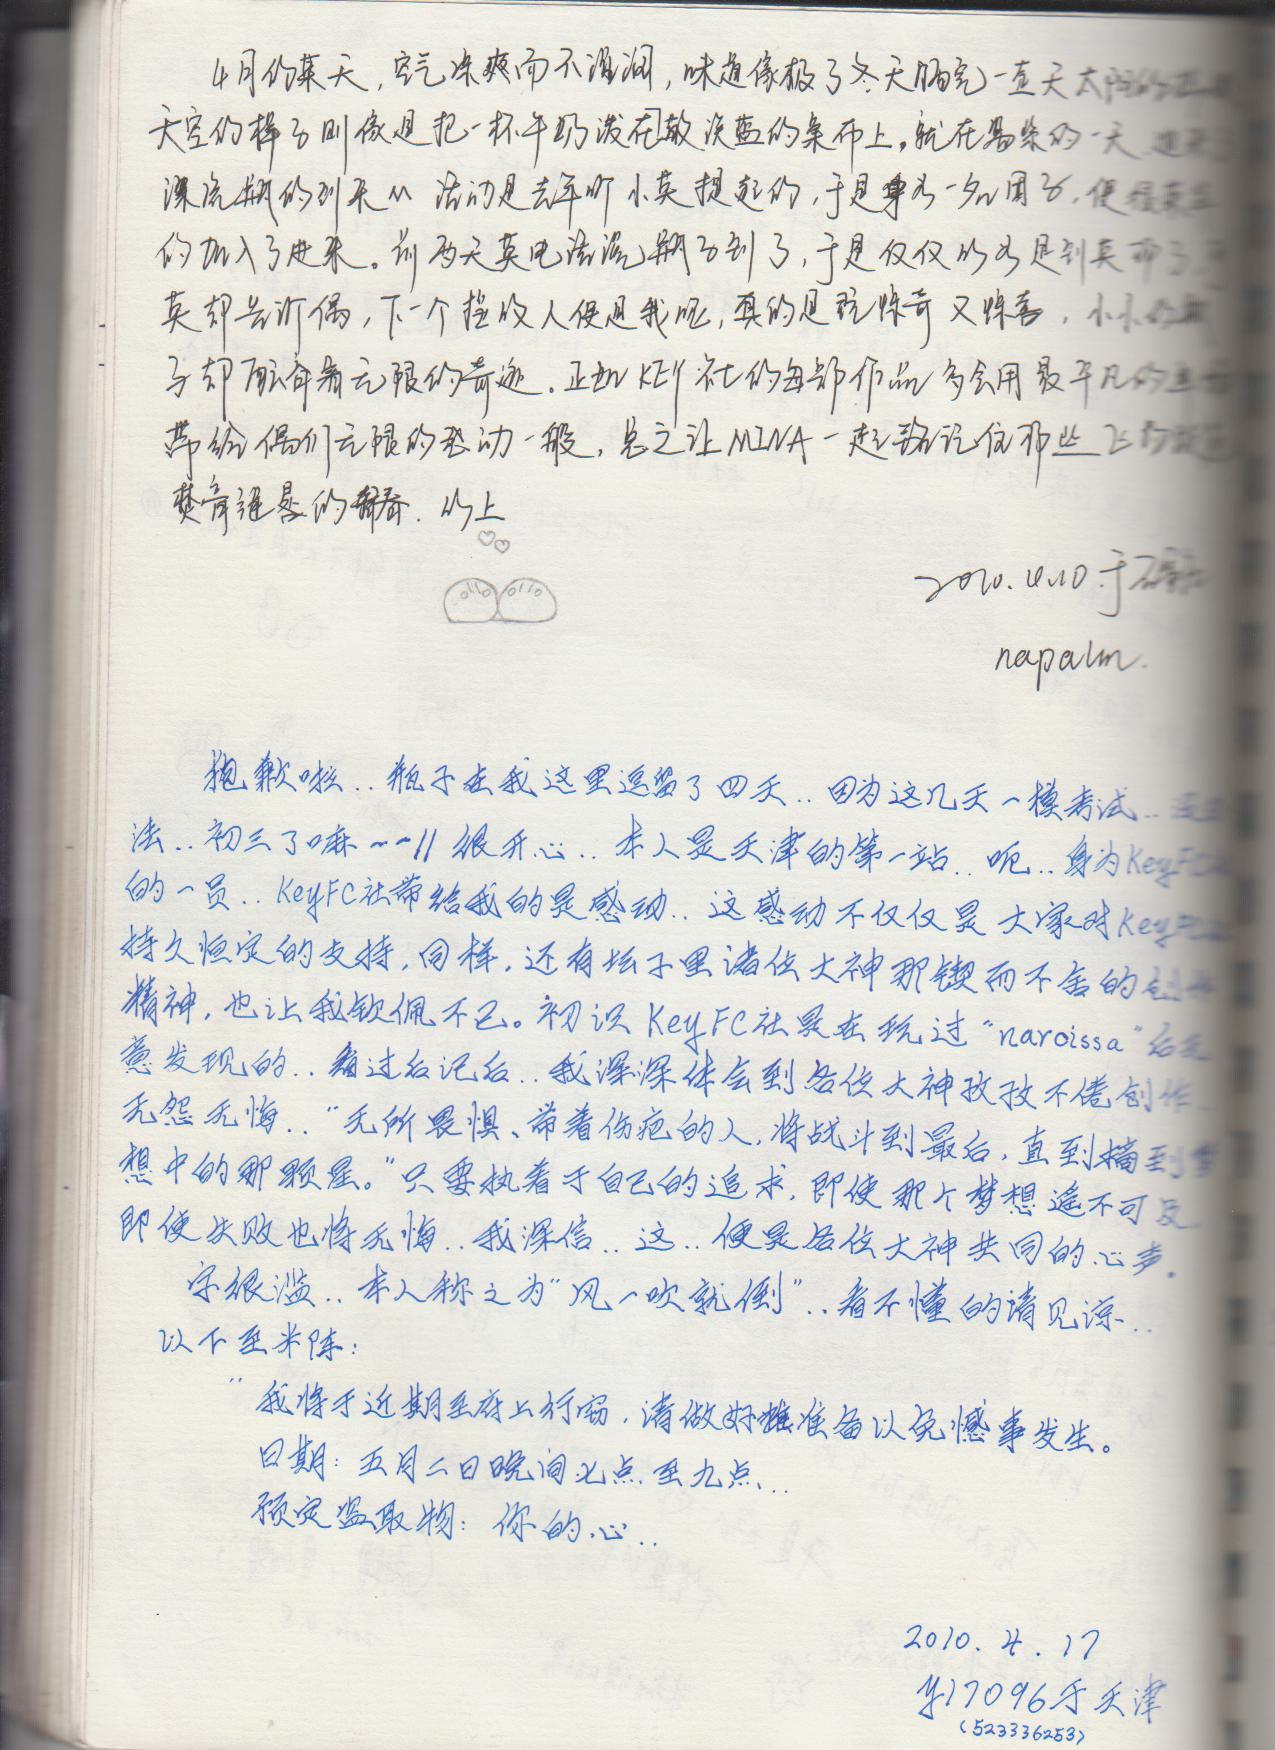 4月的某天，空气凉爽而不湿润，味道像极了冬天晒完一直天太阳的
天空的样子则像是把一杯牛奶泼在淡蓝的桌布上。就在的一天
漂流瓶的到来 活动是去年听小英提起的，于是身为一名团子，便很荣幸
的加入了进来。前两天英电话漂流瓶子到了，于是仅仅以为是到英那了
英却告诉偶，下一个接收人便是我呢，真的是既惊奇又惊喜，小小的瓶
子却有着无限的奇迹。正如KEY社的每部作品多会用最平凡的
带给偶们无限的感动一般，总之让MINA一起铭记住那些
的青春．以上
2010.4.10.于
napalm.
抱歉啦..瓶子在我这里逗留了四天..因为这几天一模考试..没
法..初三了嘛~~|| 很开心..本人是天津的第一站..呃..身为KeyFC社
的一员..KeyFC社带给我的是感动..这感动不仅仅是大家对KeyFC社
持久恒定的支持,同样,还有坛子里诸位大神那锲而不舍的创作
精神,也让我钦佩不已。初识KeyFC社是在玩过"naroissa"后无
意发现的..看过后记后..我深深体会到各位大神孜孜不倦创作
无怨无悔.."无所畏惧、带着伤疤的人,将战斗到最后,直到摘到梦
想中的那颗星。"只要执着于自己的追求,即使那个梦想遥不可及
即使失败也将无悔..我深信..这..便是各位大神共同的心声。
字很滥..本人称之为"风一吹就倒"..看不懂的请见谅..
以下至米陈:
"我将于近期至府上行窃,请做好准备以免憾事发生。
日期:五月二日晚间七点至九点...
预定盗取物:你的心..
2010.4.17
于天津
(523336253)